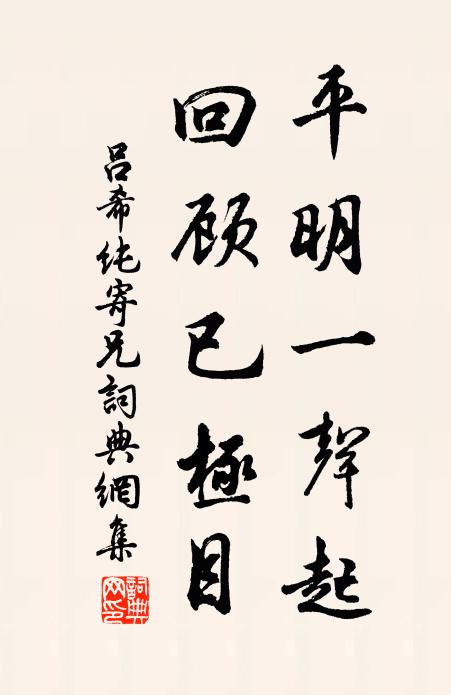 平明一聲起
回顾已極目
吕希纯寄兄詞典網集
詞典網印